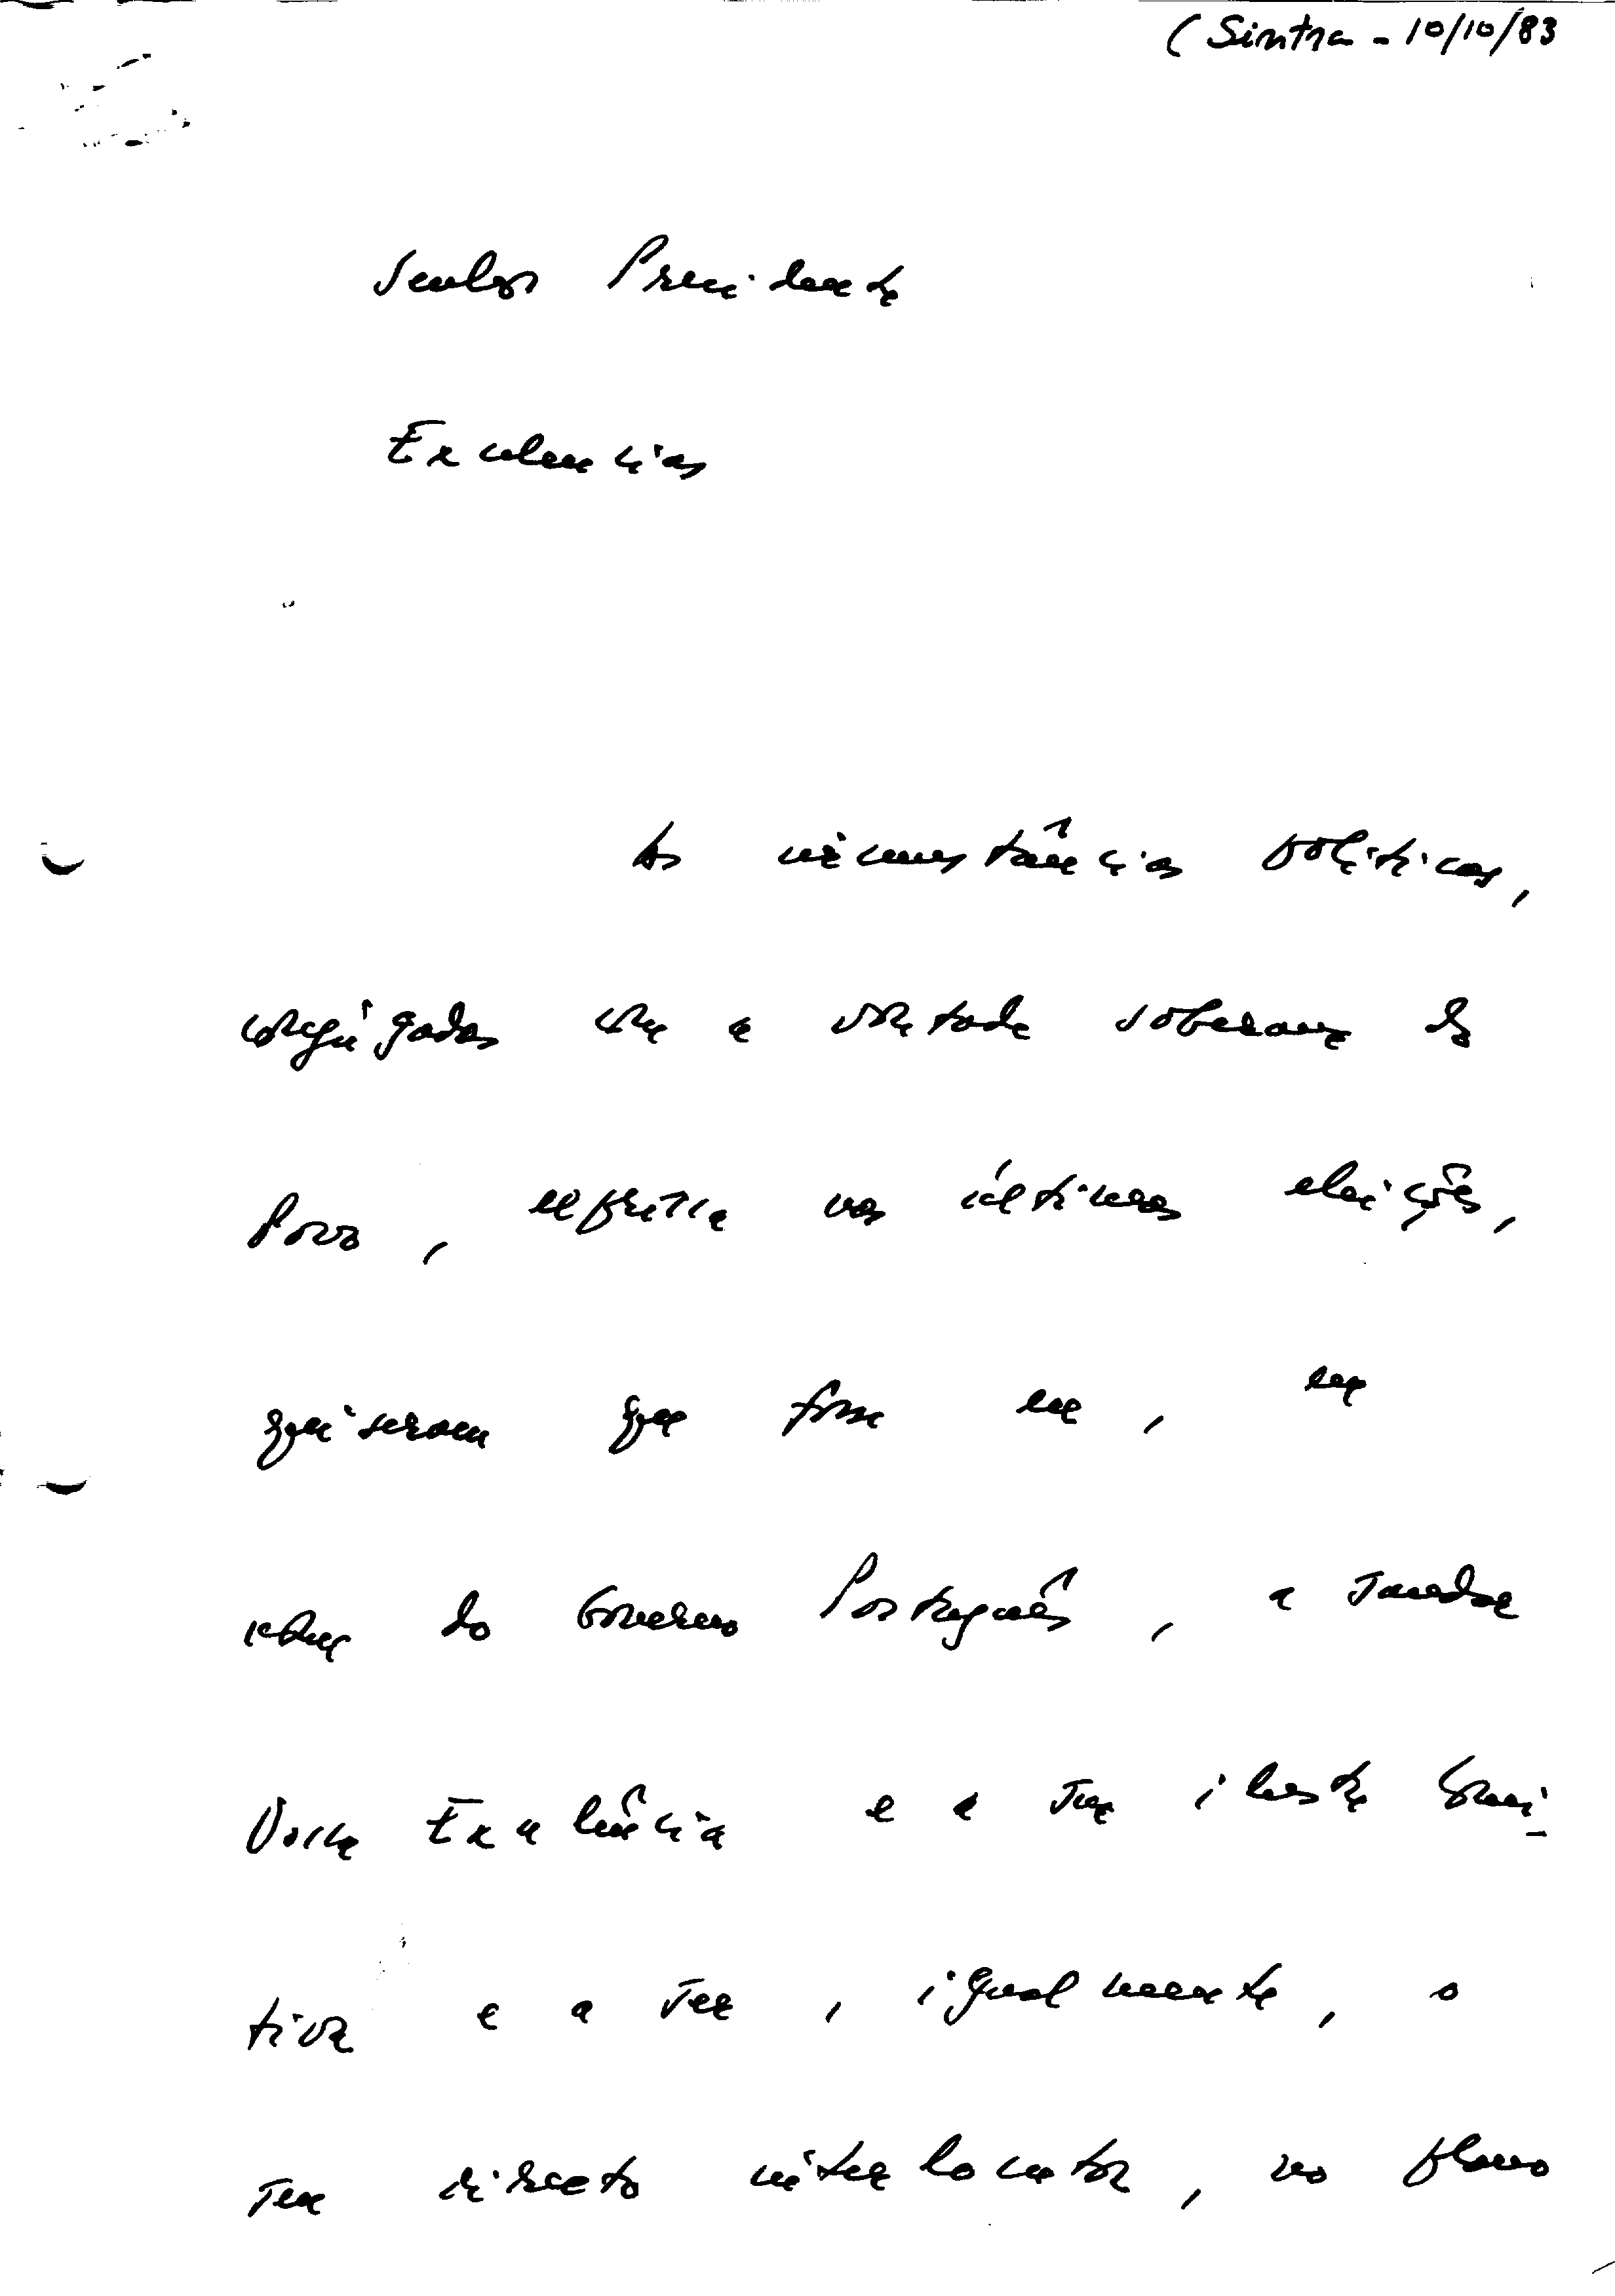 ( Sintra - 10/10/83
Senhor Presidente
Excelencias
As circunstâncias políticas,
conjugadas com a vontade soberana do
Povo, expressa nas últimas eleições,
quiseram que fosse eu, em
nome do Governo Português, a saudar
Vossa Excelência e a sua ilustre Comi-
tiva e a ser, igualmente, o
seu directo interlocutor, no plano